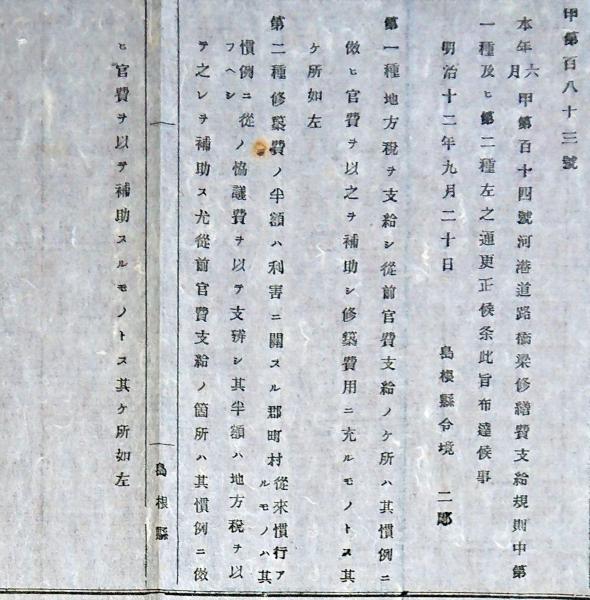 甲第百八十三號
本年六月甲第百十四號河港道路橋梁修繕費支給規則中第
一種及ヒ第二種左之通更正候条此旨布達候事
明治十二年九月二十日
島根縣令境二郎
第一種地方税ヲ支給シ從前官費支給ノケ所ハ其慣例ニ
倣ヒ官費ヲ以之ヲ補助シ修築費用ニ充ルモノトス其
ケ所如左
第二種修築費ノ半額ハ利害ニ關スル郡町村從來慣行アルモノハ其
慣例ニ從ノ協議費ヲ以テ支辨シ其半額ハ地方税ヲ以
フヘシ
テ之レヲ補助ス尤從前官費支給ノ箇所ハ其慣例ニ倣
島根縣
ヒ官費ヲ以テ補助スルモノトス其ケ所如左